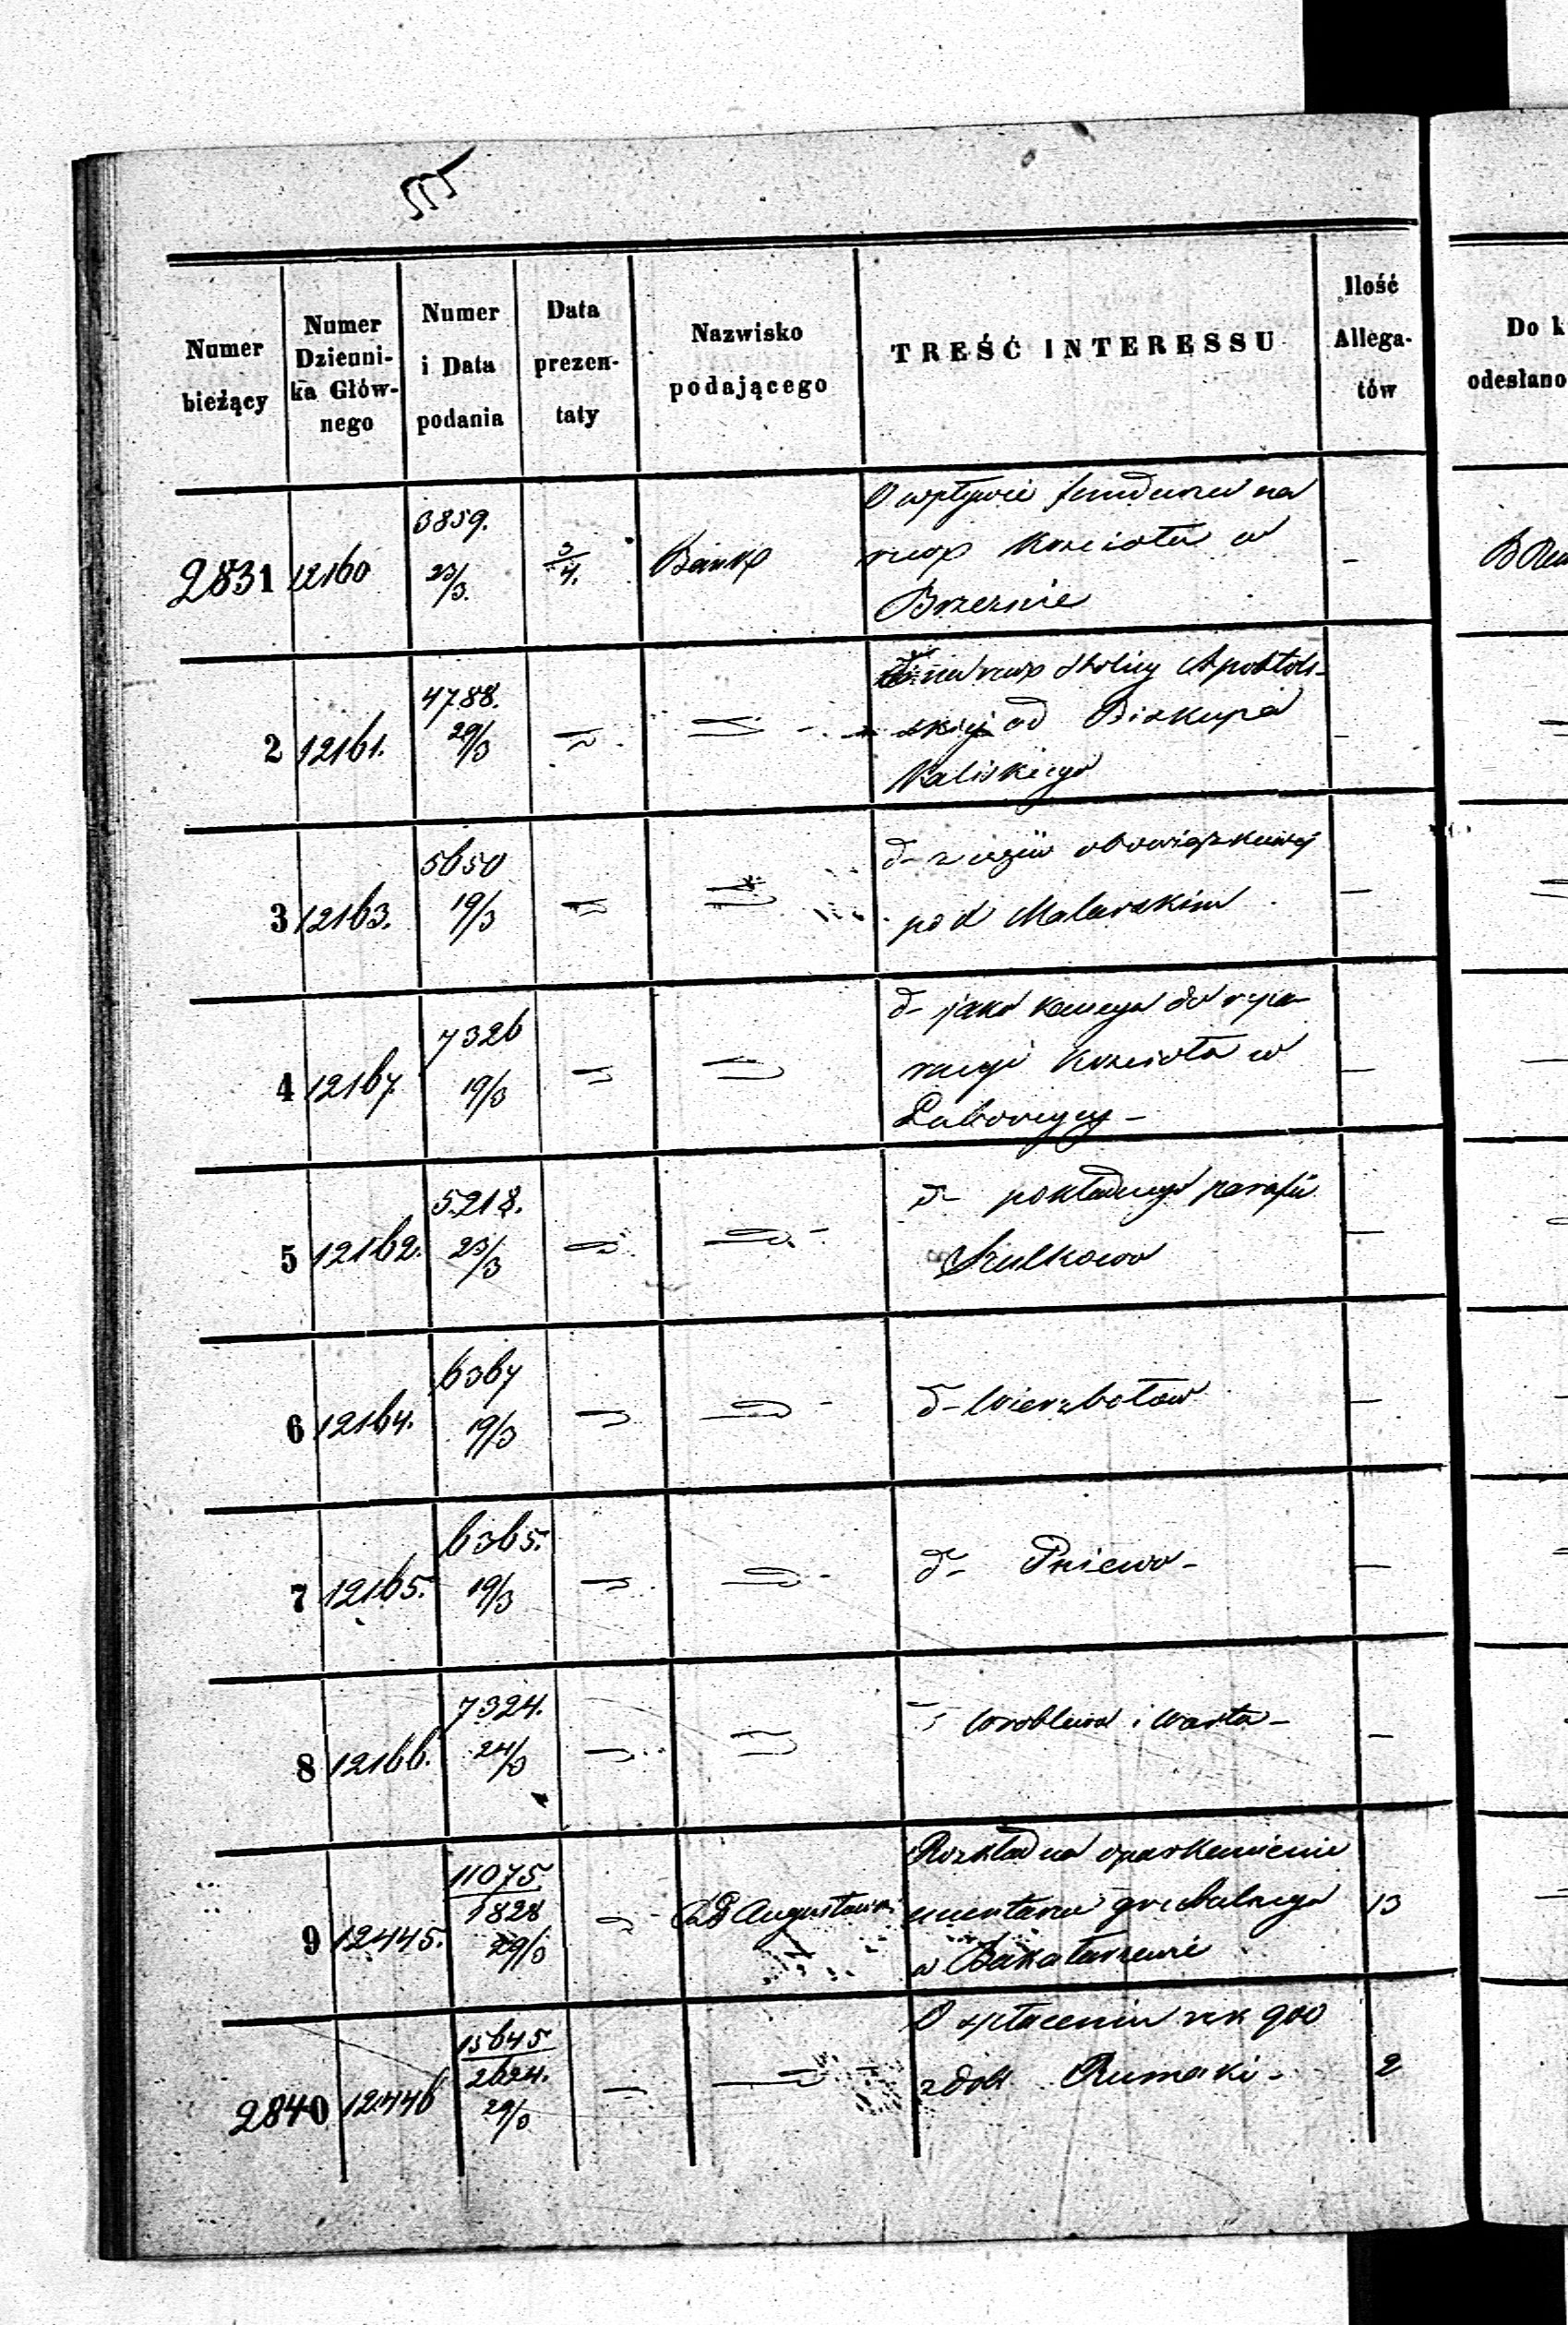 Numer bieżący | Numer Dzienni-ka Głów-nego | Numer i Data podania | Data prezen-taty | Nazwisko podającego | TREŚĆ INTERESSU | Ilość Allega-tów | Do k
odesłano
2831 12160 3859. 23/3. 3/4. Bank O wpływie funduszu na
rzecz Kościoła w –
Brzeznie
2 12161. 4788. 29/3 na rzecz Stolicy Apostols-
skiej od Biskupa –
Kaliskiego
3 12163. 5650 19/3 d– z obowiązkowej
pod Malarskim –
4 12167. 7326 19/3 d– jako kaucya do repa-
racyi Kościoła w –
5 12162. 5218. 23/3 d– pokładnego parafii
Szulkowo –
6 12164. 6367 19/3 d– Wierzbołow –
7 12165. 6365. 19/3 d– Pniewo – –
8 12166. 7324. 24/3 i Warta – –
9 12445. 11075/1828 29/3 Augustowski Rozkład na oparkanienie
cmentarza grzebalnego 13
w Bakałarzewie
2840 12446 15645/2624. 29/3 O spłaceniu rsr 900
z dóbr Rumoki – 2